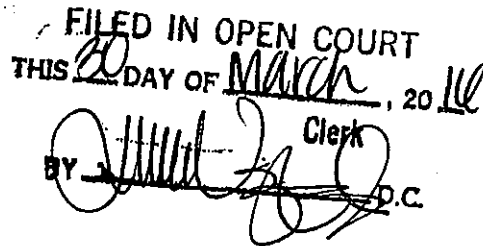 FILED IN OPEN COURT
THIS 30 DAY OF March, 2016
Clerk
BY D.C.